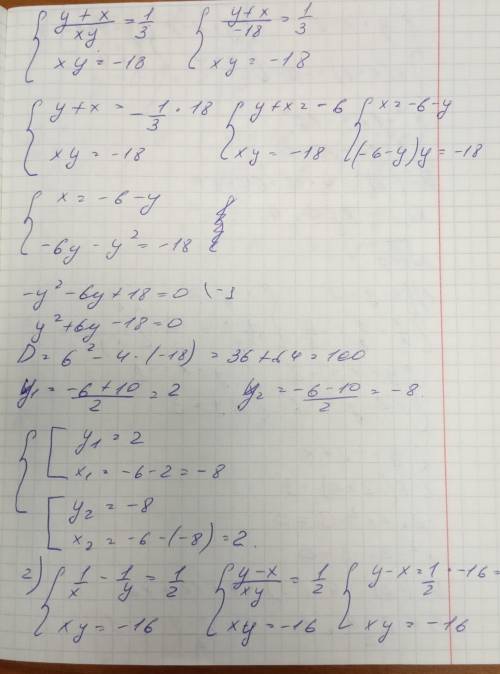 { (y+x)/xy = 1/3   { (y+x)/-18 = 1/3
xy = -18   xy = -18
{ y+x = -1/3 · 18   { y+x = -6   { x = -6-y
xy = -18   xy = -18   (-6-y)y = -18
{ x = -6-y
-6y - y² = -18
-y² - 6y + 18 = 0 \ -1
y² + 6y - 18 = 0
D = 6² - 4 · (-18) = 36 + 64 = 100
y₁ = (-6+10)/2 = 2   y₂ = (-6-10)/2 = -8
{ [ y₁ = 2
x₁ = -6-2 = -8
[ y₂ = -8
x₂ = -6-(-8) = 2.
2) { 1/x - 1/y = 1/2   { (y-x)/xy = 1/2   { y-x = 1/2 · -16 =
xy = -16   xy = -16   xy = -16